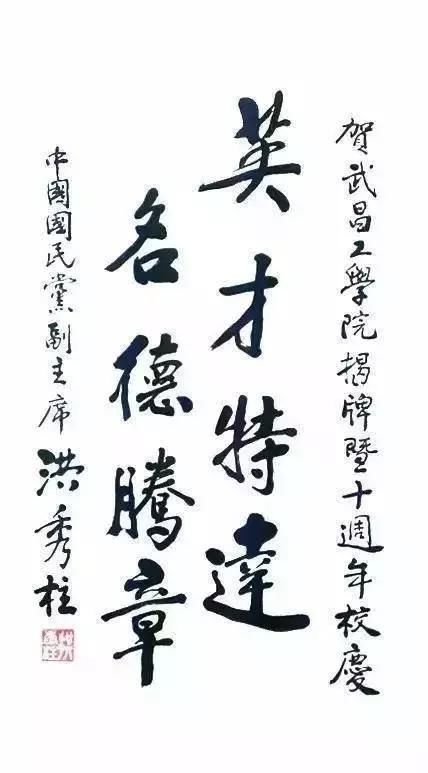 賀武昌工學院揭牌暨十週年校慶
英才特達
名德騰章
中國國民黨副主席洪秀柱